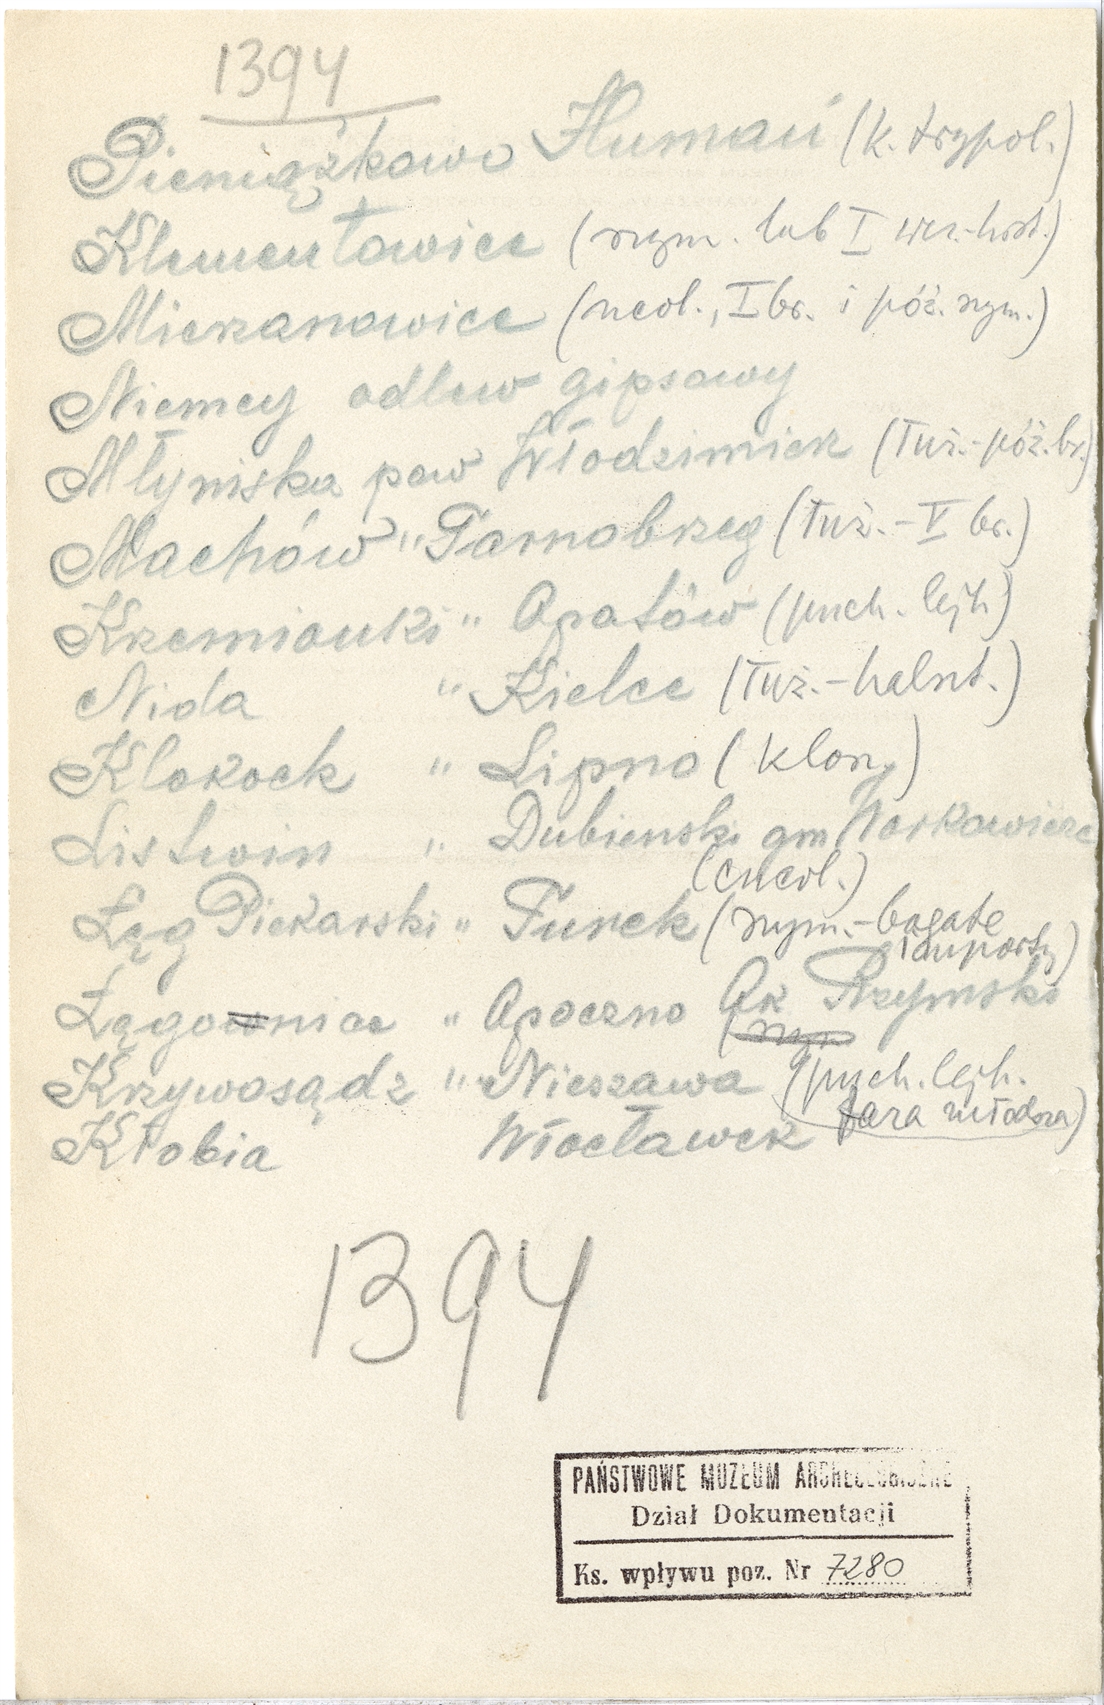 1394
Pieniążkowo Humań (k. trypol.)
Klementowice (rzym. lub I wcz.-hist.)
Mierzanowice (neol., I br. i póź. rzym.)
Niemcy odlew gipsowy
Młyniska pow Włodzimierz (łuż.-póź. br.)
Machów " Tarnobrzeg (łuż.-V br.)
Krzemionki " Opatów (puch. lejk)
Nida " Kielce (łuż.-halszt.)
Klokock " Lipno (klosz.)
Listwin " Dubienski gm Warkowicze
(eneol.)
Łęg Piekarski " Turek (rzym.-bogate
importy)
Łęgonice " Opoczno Ok Rzymski
Krzywosądz " Nieszawa (puch. lejk.
faza młodsza)
Kłobia Włocławek
1394
PAŃSTWOWE MUZEUM ARCHEOLOGICZNE
Dział Dokumentacji
Ks. wpływu poz. Nr 7280